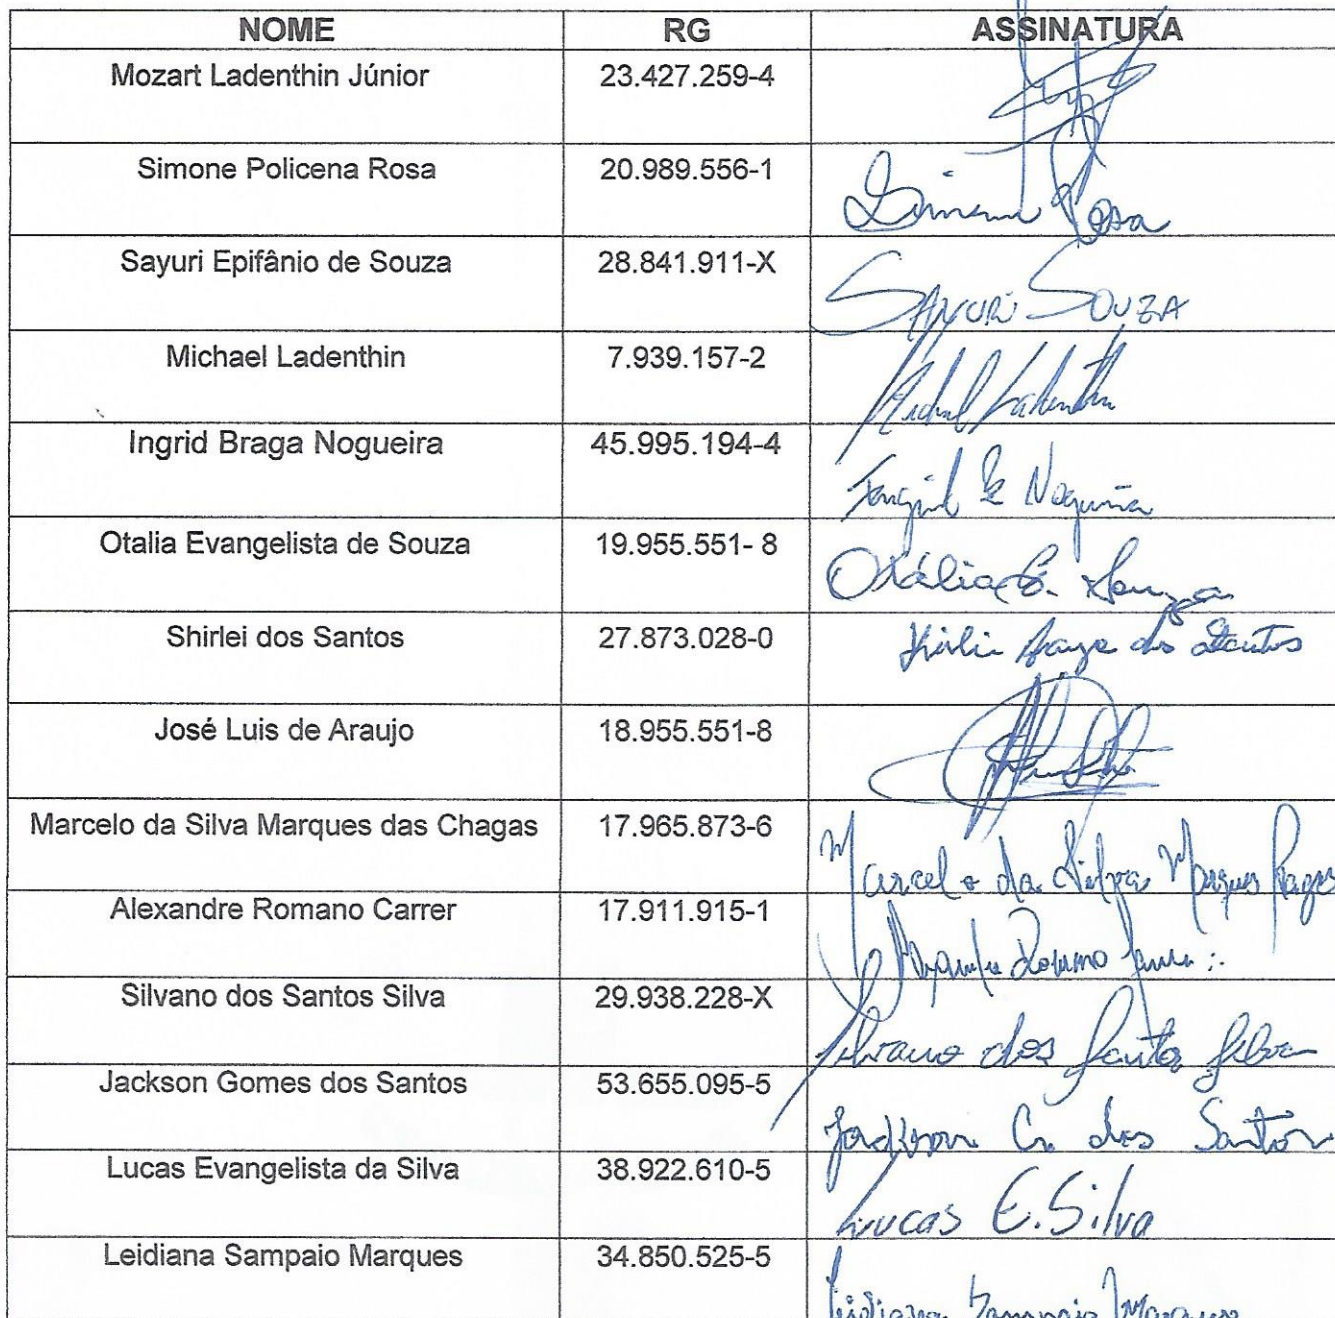 NOME RG ASSINATURA
Mozart Ladenthin Júnior 23.427.259-4
Simone Policena Rosa 20.989.556-1 Simone Rosa
Sayuri Epifânio de Souza 28.841.911-X SAYURI SOUZA
Michael Ladenthin 7.939.157-2 Michael Ladenthin
Ingrid Braga Nogueira 45.995.194-4 Nogueira
Otalia Evangelista de Souza 19.955.551- 8 Otália E. Souza
Shirlei dos Santos 27.873.028-0 dos Santos
José Luis de Araujo 18.955.551-8
Marcelo da Silva Marques das Chagas 17.965.873-6 Marcelo da Silva Marques
Alexandre Romano Carrer 17.911.915-1 Alexandre Romano
Silvano dos Santos Silva 29.938.228-X Silvano dos Santos Silva
Jackson Gomes dos Santos 53.655.095-5 Jackson G. dos Santos
Lucas Evangelista da Silva 38.922.610-5 Lucas E. Silva
Leidiana Sampaio Marques 34.850.525-5 Leidiana Sampaio Marques